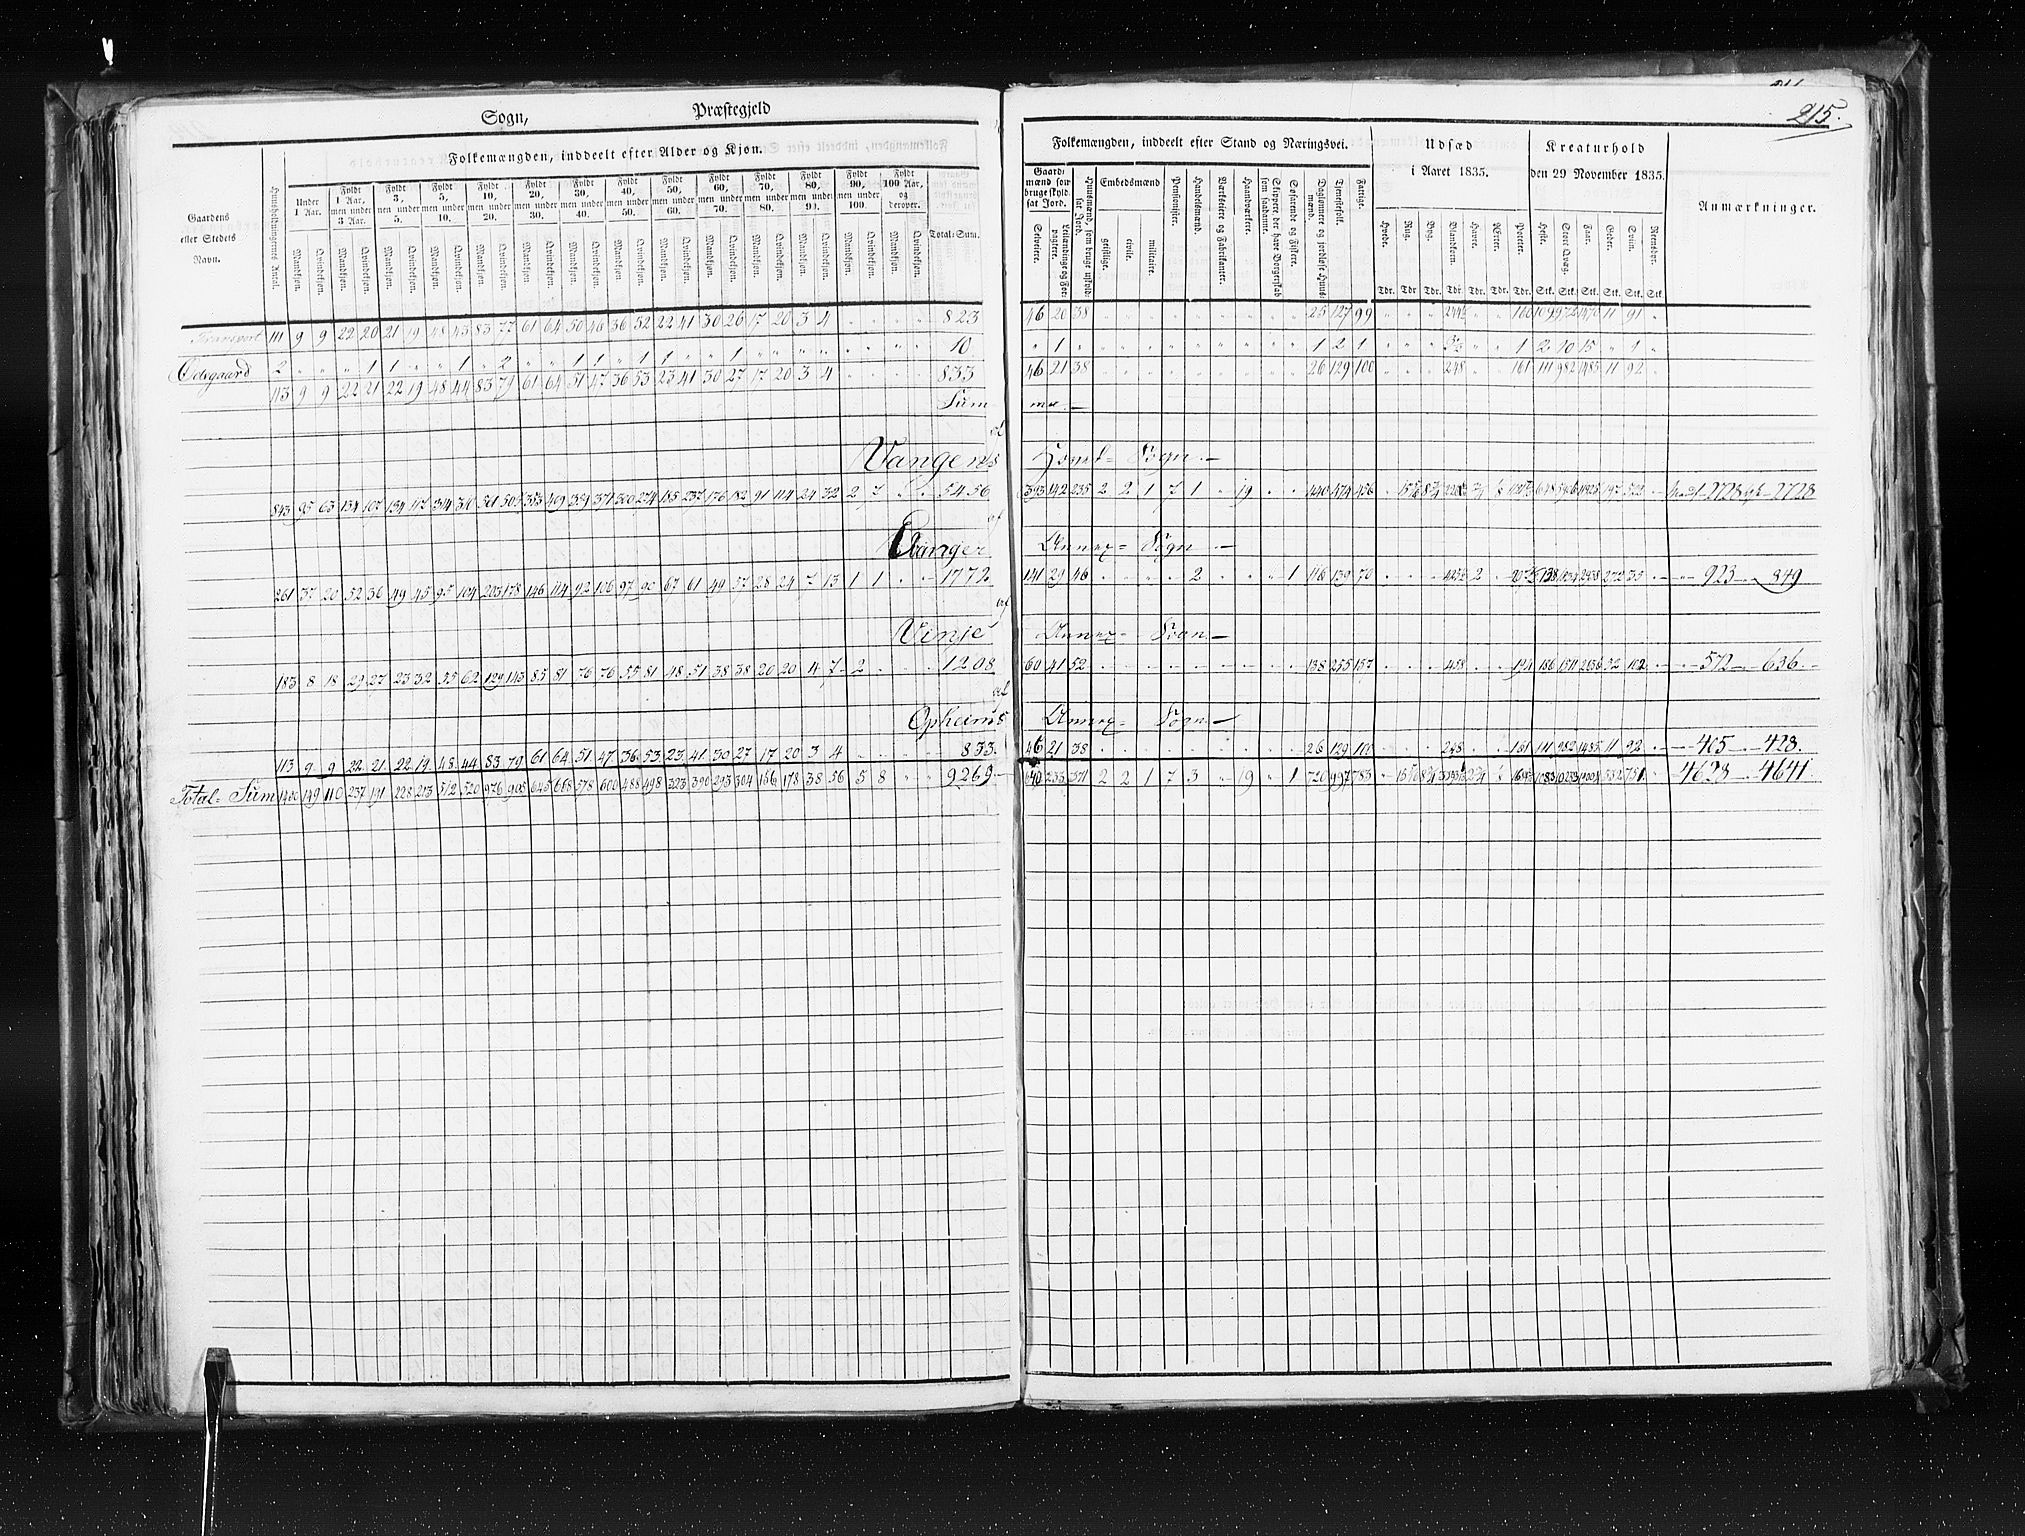 215.
Sogn, Præstegjeld
Gaardens eller Stedets Navn.
Huusholdningernes Antal.
Folkemængden, inddeelt efter Alder og Kjøn.
Under 1 Aar.
Fyldt 1 Aar, men under 3 Aar.
Fyldt 3, men under 5.
Fyldt 5, men under 10.
Fyldt 10, men under 20.
Fyldt 20, men under 30.
Fyldt 30, men under 40.
Fyldt 40, men under 50.
Fyldt 50, men under 60.
Fyldt 60, men under 70.
Fyldt 70, men under 80.
Fyldt 80, men under 90.
Fyldt 90, men under 100.
Fyldt 100 Aar, og derover.
Mandkjøn. Qvindekjøn.
Total-Sum.
Folkemængden, inddeelt efter Stand og Næringsvei.
Gaardmænd som bruge skyldsat Jord.
Selveiere.
Leilændinge og Forpagtere.
Huusmænd, som bruge uskyldsat Jord.
Embedsmænd
geistlige. civile. militaire.
Pensionister.
Handelsmænd.
Værkeiere og Fabrikanter.
Haandværkere.
Skippere der have Borgerskab som saadanne.
Søfarende og Fiskere.
Daglønnere og jordløse Huusmænd.
Tjenestefolk.
Fattige.
Udsæd i Aaret 1835.
Hvede. Rug. Byg. Blandkorn. Havre. Ærter. Poteter.
Tdr. Tdr Tdr. Tdr. Tdr. Tdr. Tdr.
Kreaturhold den 29 November 1835.
Heste. Stort Qvæg. Faar. Geder. Sviin. Reensdyr.
Stk. Stk. Stk. Stk. Stk. Stk.
Anmærkninger.
Transport 111 9 9 22 20 21 19 48 43 83 77 61 64 50 46 36 52 22 41 30 26 17 20 3 4 823 46 20 38 25 127 99 160 109 972 1470 11 91
Ødegaard 2 1 1 1 2 1 1 1 1 1 10 1 1 2 1 1 2 10 15 1
113 9 9 22 21 22 19 48 44 83 79 61 64 51 47 36 53 23 41 30 27 17 20 3 4 833 46 21 38 26 129 100 248 161 111 982 1485 11 92
Sum ma.
af
Vangens Hoved- Sogn.
843 95 63 134 107 134 117 314 310 561 505 353 409 359 371 300 274 185 237 176 182 91 114 24 32 2 7 5456 393 142 235 2 2 1 7 1 19 440 474 456 2728 2728
af
Evanger Annex- Sogn
261 37 20 52 36 49 45 95 104 203 178 146 114 92 106 97 90 67 61 49 57 28 24 7 13 1 1 1772 141 29 46 2 1 116 139 70 272 35 923 849
af
Vinje Annex- Sogn
183 8 18 29 27 23 32 55 62 129 143 85 81 76 76 55 81 48 51 38 38 20 20 4 7 2 1208 60 41 52 138 255 157 458 194 186 1511 2136 52 102 572 636
af
Opheims Annex- Sogn
113 9 9 22 21 22 19 48 44 83 79 61 64 51 47 36 53 23 41 30 27 17 20 3 4 833 46 21 38 26 129 100 248 161 111 982 1485 11 92 405 428.
Total- Sum 1400 149 110 237 191 228 213 512 520 976 905 645 668 578 600 488 498 323 390 293 304 156 178 38 56 5 8 9269 640 233 371 2 2 1 7 3 19 1 720 997 783 532 751 4628 4641